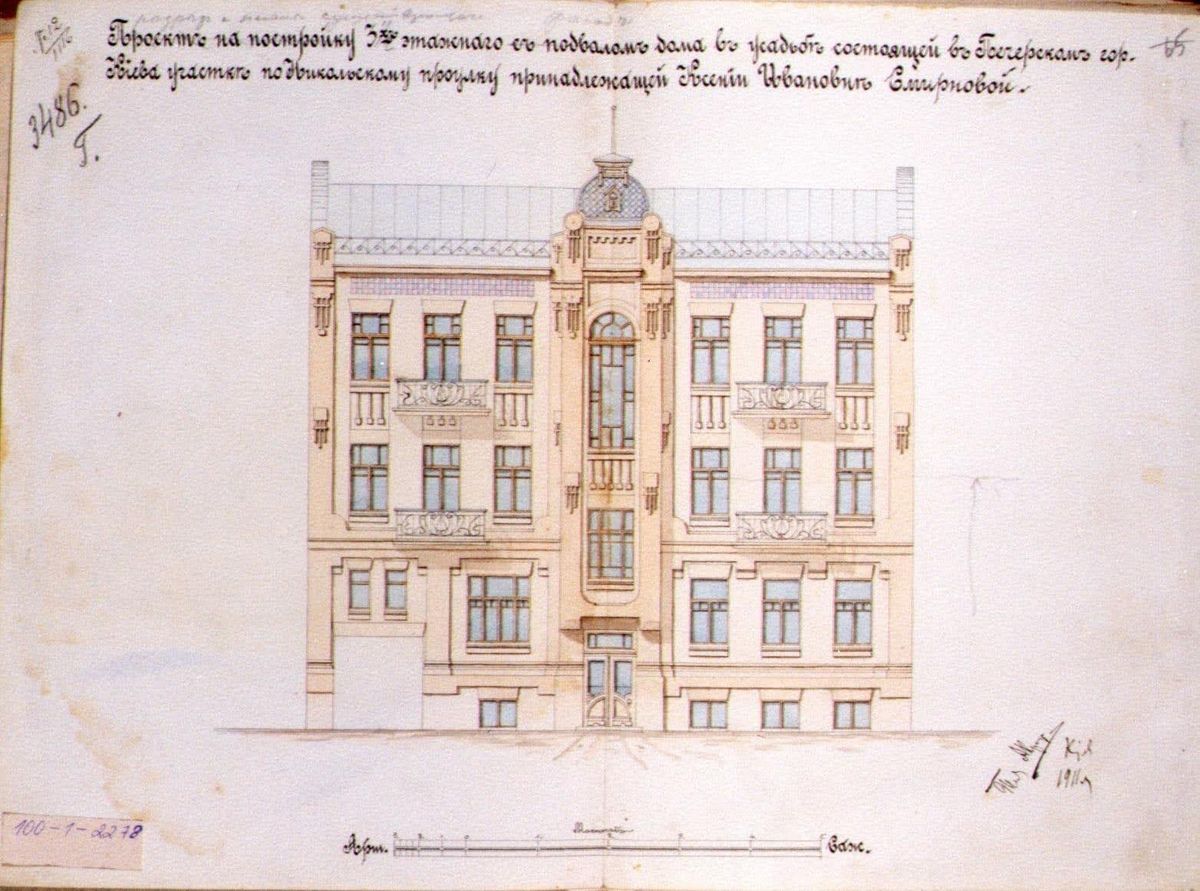 Проектъ на постройку 3хъ этажнаго съ подваломъ дома въ усадьбѣ состоящей въ Печерскомъ гор.
Кіева участкѣ по Никольскому проулку принадлежащей Ксеніи Ивановнѣ Смирновой.
3486.
Г.
1911
100-1-2278
Масштабъ
Арш.
Саж.